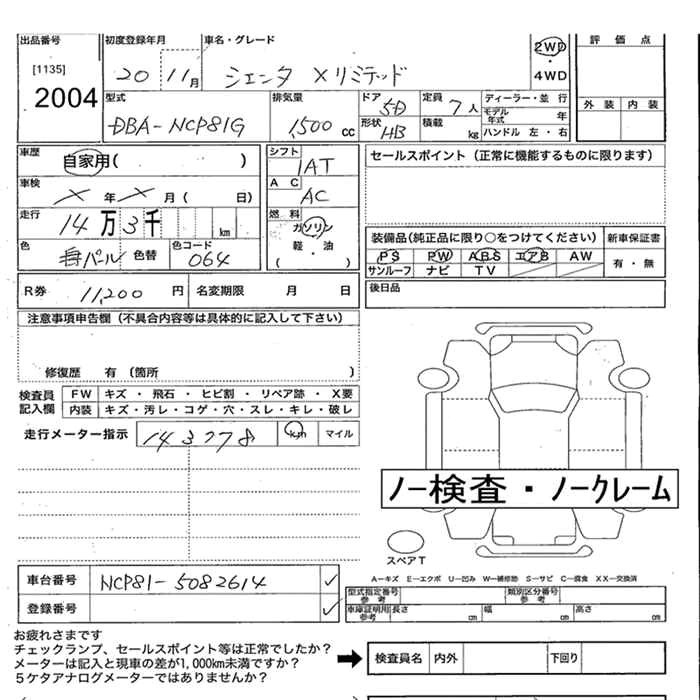 出品番号 初度登録年月 車名・グレード 評価点
[1135] 20 11月 シエンタ Xリミテッド 2WD・4WD
2004 外装 内装
型式 排気量 ドア 5D 定員 7人 ディーラー・並行
DBA-NCP81G 1,500cc 形状 HB 積載 kg モデル年式 年
ハンドル 左・右
車歴 自家用( ) シフト 1AT セールスポイント(正常に機能するものに限ります)
車検 X年X月( ) AC AC
走行 14万3千 km 燃料 ガソリン
軽・油
( )
色 パール 色替 色コード 064
装備品(純正品に限り○をつけてください) 新車保証書
PS PW ABS エアB AW 有・無
サンルーフ ナビ TV
R券 11,200円 名変期限 月 日 後日品
注意事項申告欄(不具合内容等は具体的に記入して下さい)
修復歴 有(箇所 )
検査員記入欄 FW キズ・飛石・ヒビ割・リペア跡・X要
内装 キズ・汚レ・コゲ・穴・スレ・キレ・破レ
走行メーター指示 143778 km マイル
ノー検査・ノークレーム
スペアT
A-キズ E-エクボ U-凹み W-補修跡 S-サビ C-腐食 XX-交換済
車台番号 NCP81-5082614 ✓
登録番号 ✓
型式指定番号参考 類別区分番号参考
車庫証明用参考 長さ cm 幅 cm 高さ cm
お疲れさまです
チェックランプ、セールスポイント等は正常でしたか?
メーターは記入と現車の差が1,000km未満ですか?
5ケタアナログメーターではありませんか?
➡ 検査員名 内外 下回り